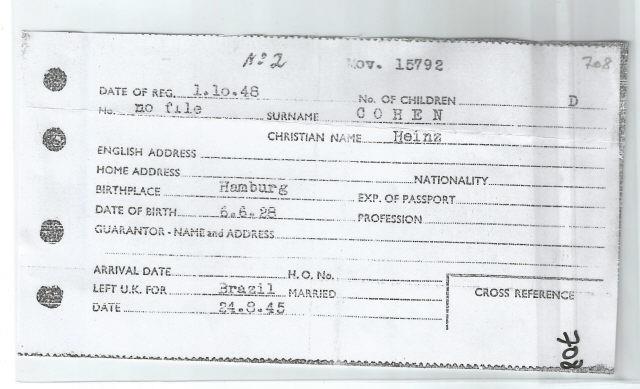 No 2 Mov. 15792 708
DATE OF REG. 1.10.48 No. OF CHILDREN D
No. no file SURNAME COHEN
CHRISTIAN NAME Heinz
ENGLISH ADDRESS
HOME ADDRESS NATIONALITY
BIRTHPLACE Hamburg EXP. OF PASSPORT
DATE OF BIRTH 6.6.28 PROFESSION
GUARANTOR - NAME and ADDRESS
ARRIVAL DATE H.O. No.
LEFT U.K. FOR Brazil MARRIED CROSS REFERENCE
DATE 24.8.45
708